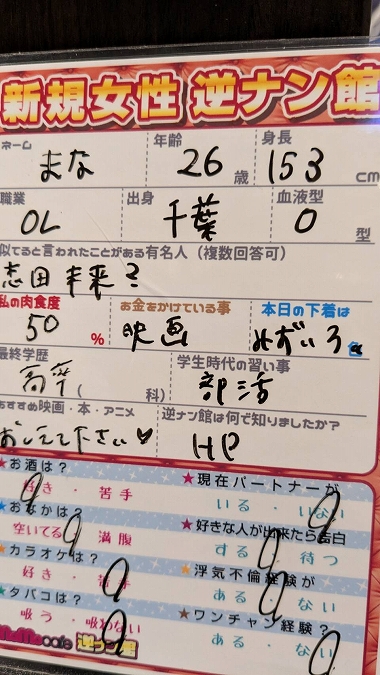 新規女性 逆ナン館
ネーム 年齢 身長
まな 26歳 153cm
職業 出身 血液型
OL 千葉 O型
似てると言われたことがある有名人（複数回答可）
志田未来？
私の肉食度 お金をかけている事 本日の下着は
50% 映画 みずいろ色
最終学歴 学生時代の習い事
高卒（ 科） 部活
おすすめ映画・本・アニメ 逆ナン館は何で知りましたか？
おしえて下さい♥ HP
★お酒は？ ★現在パートナーが
好き・苦手 いる・いない
★おなかは？ ★好きな人が出来たら告白
空いてる・満腹 する・待つ
★カラオケは？ ★浮気不倫経験が
好き・苦手 ある・ない
★タバコは？ ★ワンチャン経験？
吸う・吸わない ある・ない
cafe 逆ナン館